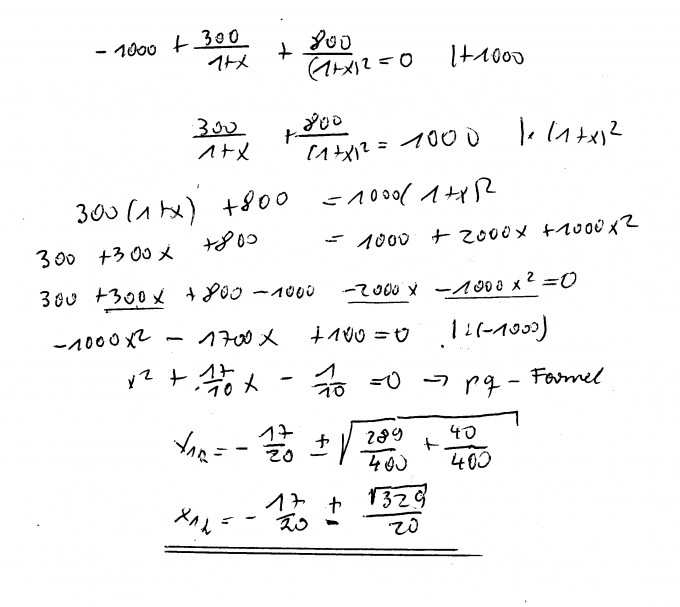 -1000 + 300/(1+x) + 800/(1+x)² = 0 |+1000
300/(1+x) + 800/(1+x)² = 1000 |· (1+x)²
300(1+x) + 800 = 1000(1+x)²
300 + 300x + 800 = 1000 + 2000x + 1000x²
300 + 300x + 800 - 1000 - 2000x - 1000x² = 0
-1000x² - 1700x + 100 = 0 |:(-1000)
x² + 17/10 x - 1/10 = 0 → pq-Formel
x₁,₂ = - 17/20 ± √(289/400 + 40/400)
x₁,₂ = - 17/20 ± √329/20